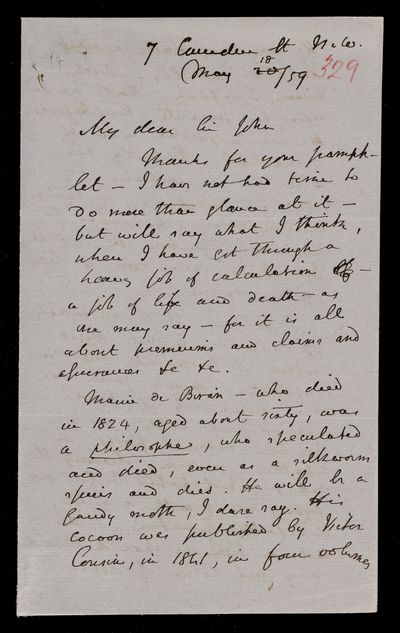 7 Camden St N.W.
May 18 20/59 329
My dear Sir John
Thanks for your pamph-
let – I have not had time to
do more than glance at it –
but will say what I think,
when I have got through a
heavy job of calculation –
a job of life and death – as
one may say – for it is all
about premiums and claims and
assurances &c &c.
Maine de Biran – who died
in 1824, aged about sixty, was
a philosophe, who speculated
and died, even as a silkworm
spins and dies. He will be a
gaudy moth, I dare say. His
cocoon was published by Victor
Cousin, in 1841, in four volumes